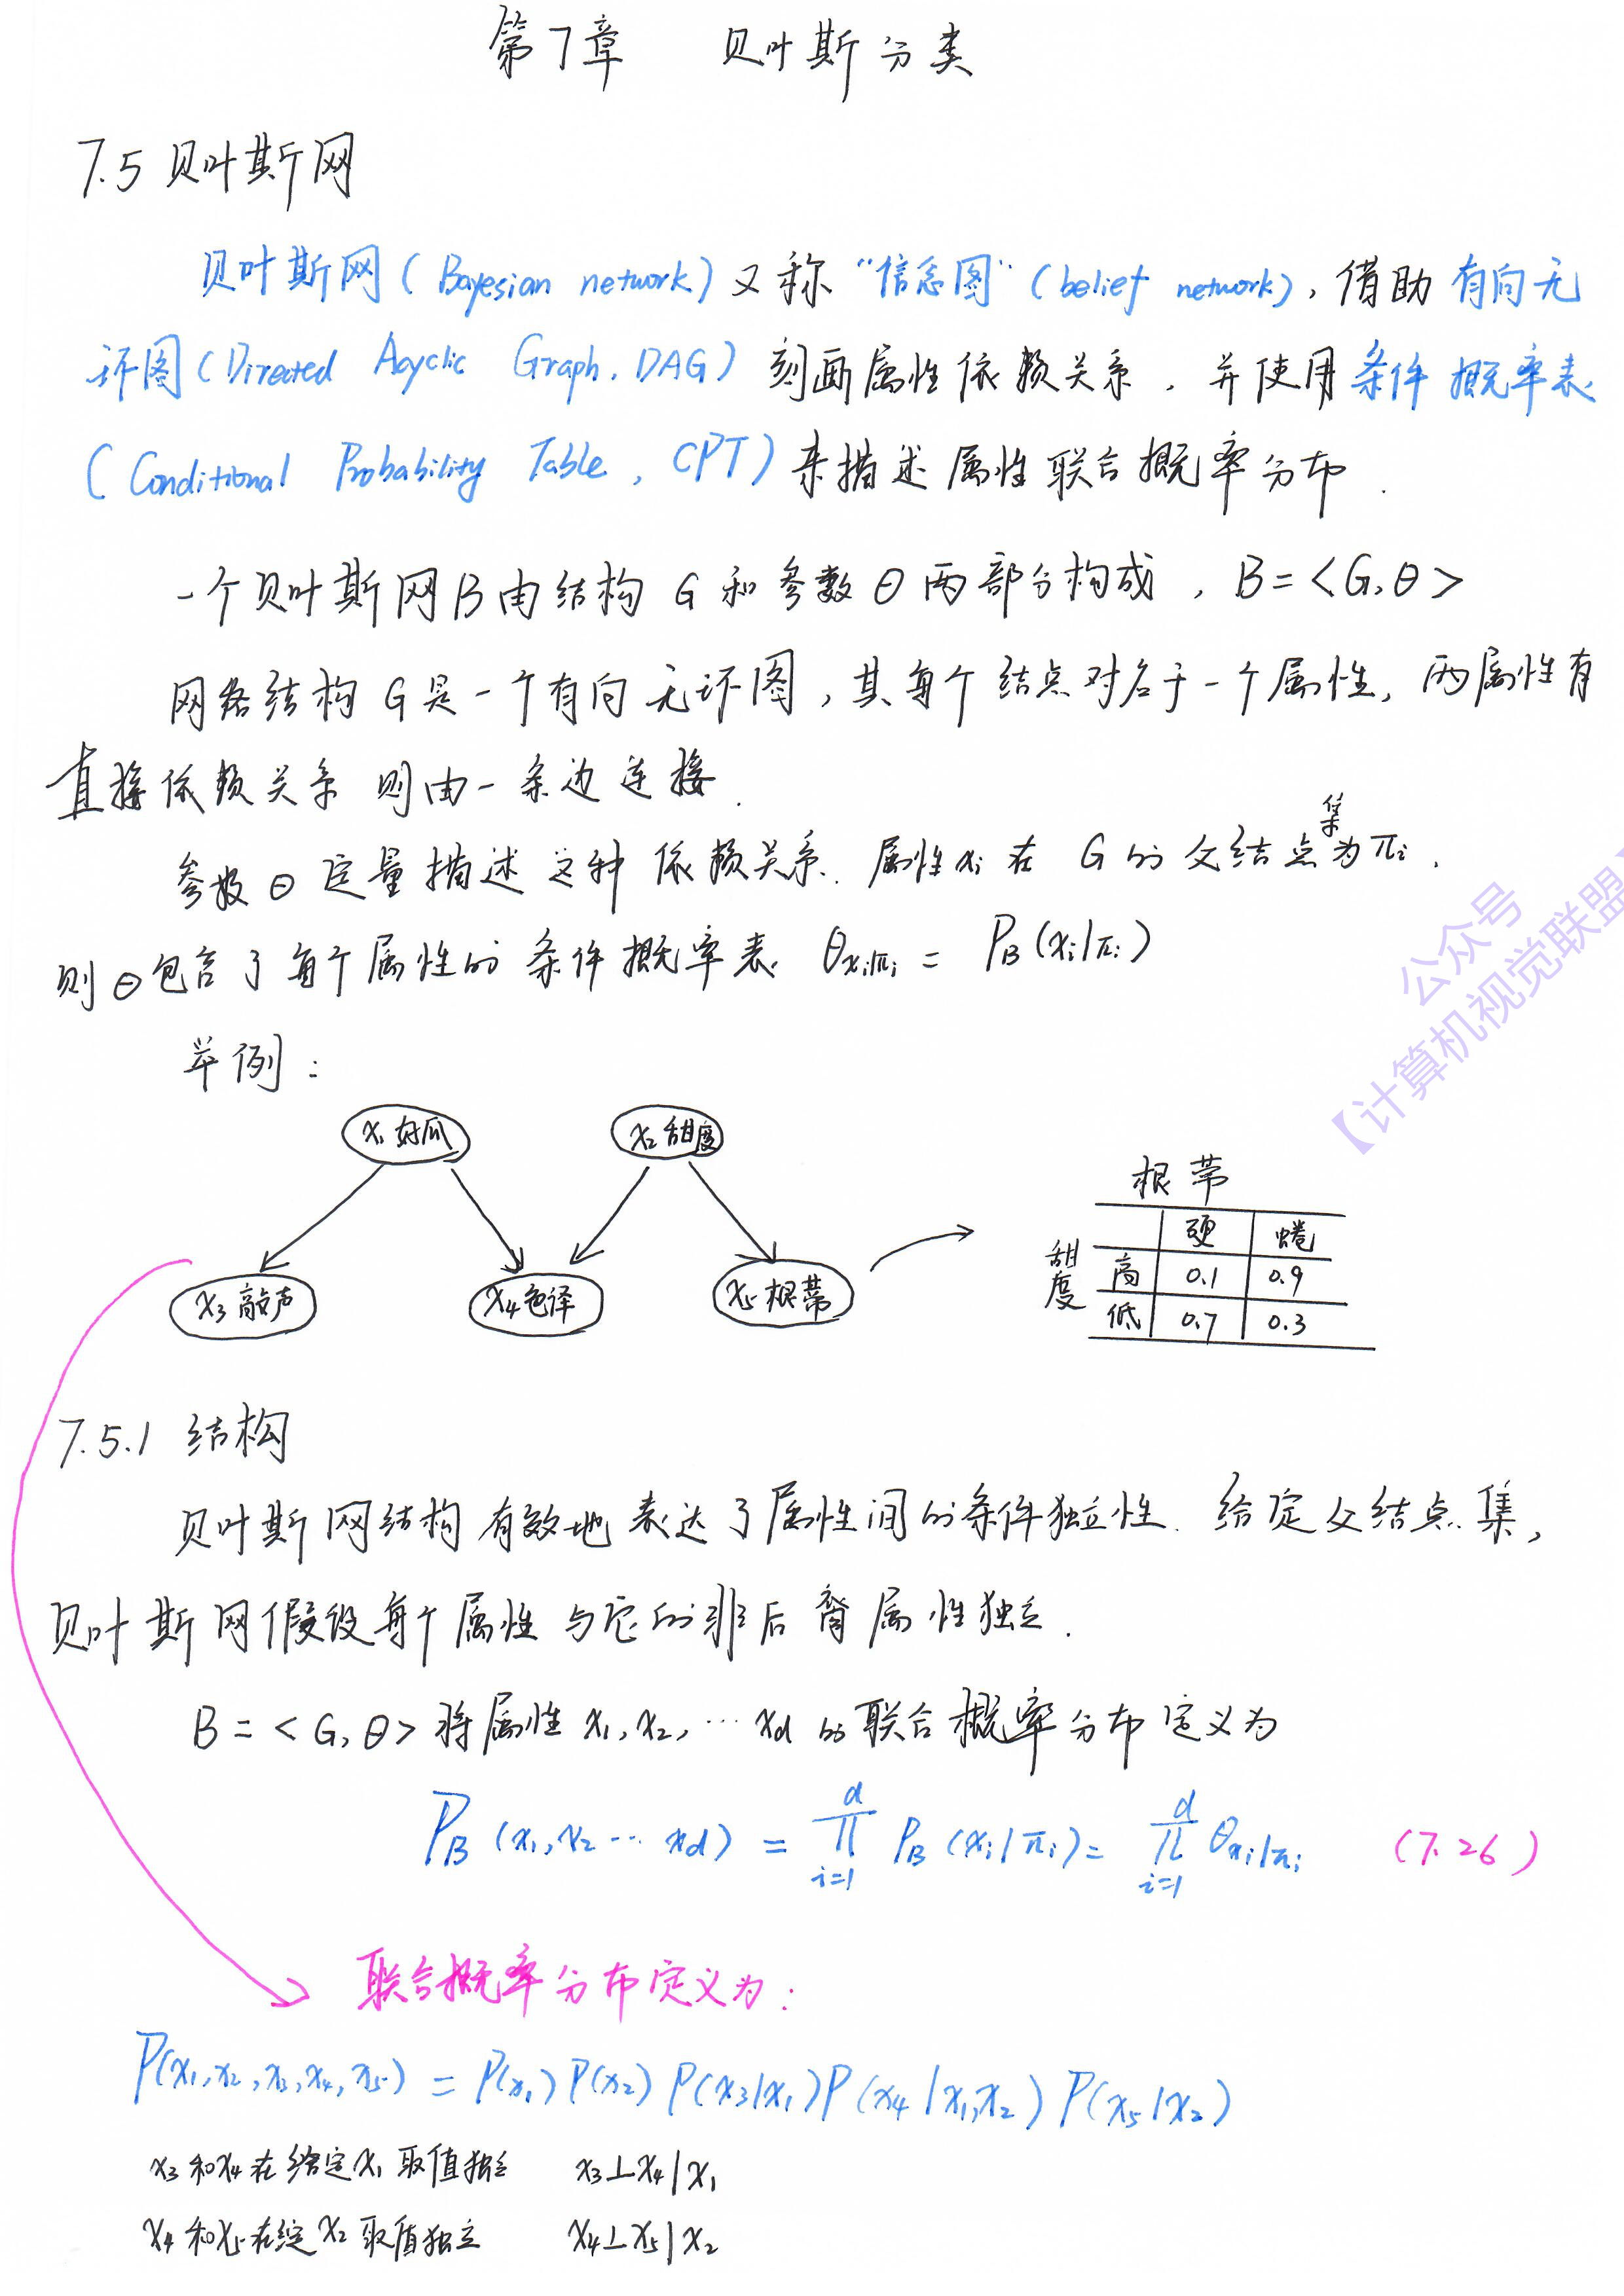 第7章 贝叶斯分类
7.5 贝叶斯网
贝叶斯网(Bayesian network)又称"信念图"(belief network),借助有向无
环图(Directed Acyclic Graph, DAG)刻画属性依赖关系,并使用条件概率表
(Conditional Probability Table, CPT)来描述属性联合概率分布.
一个贝叶斯网B由结构G和参数θ两部分构成,B=<G,θ>
网络结构G是一个有向无环图,其每个结点对应于一个属性,两属性有
直接依赖关系则由一条边连接.
参数θ定量描述这种依赖关系.属性xi在G的父结点集为πi.
则θ包含了每个属性的条件概率表 θxi|πi = PB(xi|πi)
举例:
x1好瓜 x2甜度
x3敲声 x4色泽 x5根蒂
根蒂
硬 蜷
甜度
高 0.1 0.9
低 0.7 0.3
7.5.1 结构
贝叶斯网结构有效地表达了属性间的条件独立性.给定父结点集,
贝叶斯网假设每个属性与它的非后裔属性独立.
B=<G,θ>将属性x1,x2,…xd的联合概率分布定义为
PB(x1,x2…xd) = ∏_{i=1}^{d} PB(xi|πi) = ∏_{i=1}^{d} θxi|πi (7.26)
联合概率分布定义为:
P(x1,x2,x3,x4,x5) = P(x1)P(x2)P(x3|x1)P(x4|x1,x2)P(x5|x2)
x3和x4在给定x1取值独立 x3⊥x4|x1
x4和x5在给定x2取值独立 x4⊥x5|x2
公众号
【计算机视觉联盟】